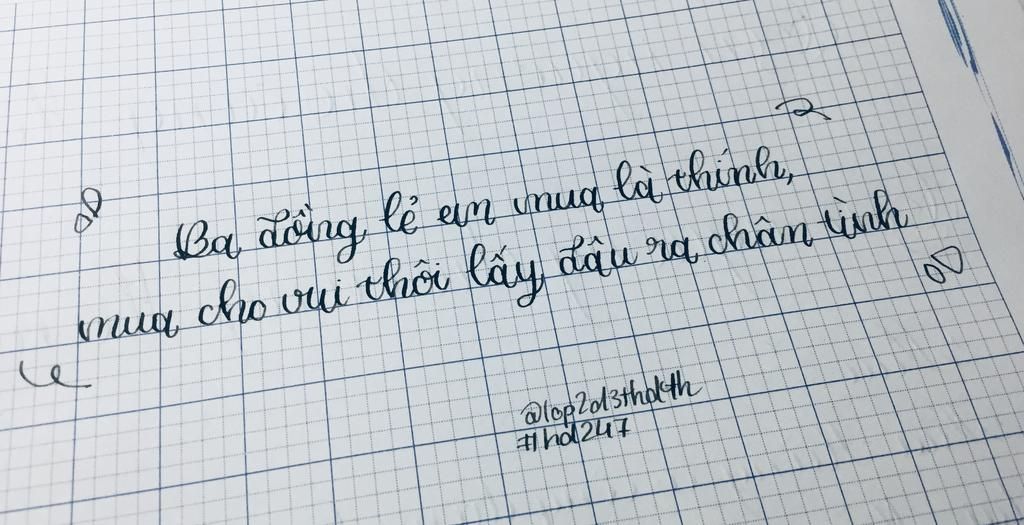 Ba đồng lẻ em mua là thính,
mua cho vui thôi lấy đâu ra chân tình
@lop2d3thdkth
#hd247